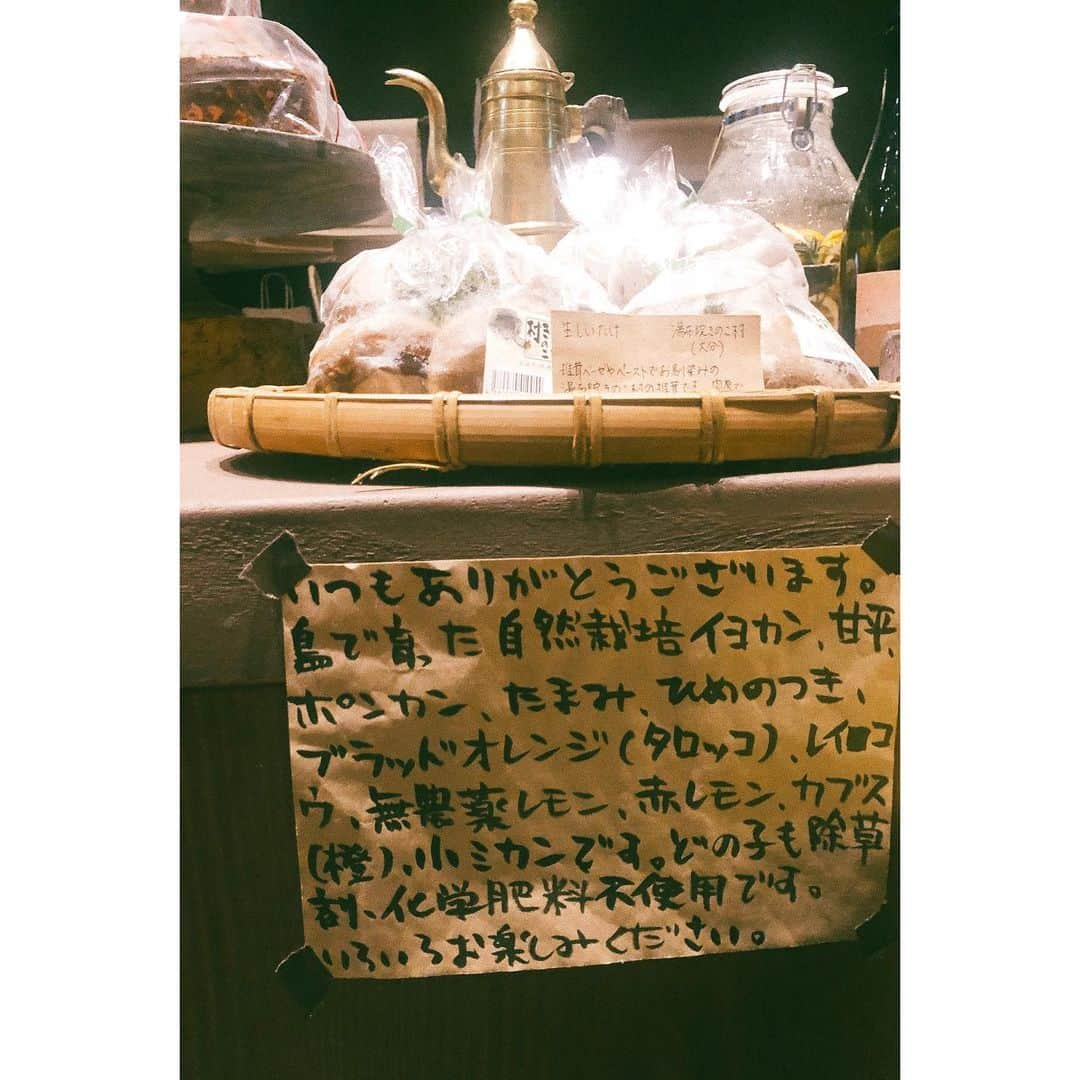 きのこ村
生しいたけ 湯布院きのこ村
(大分)
椎茸ベーゼやペーストでお馴染みの
いつもありがとうございます。
島で育った自然栽培イヨカン、甘平、
ポンカン、たまみ、ひめのつき、
ブラッドオレンジ(タロッコ)、レイコロ
ウ、無農薬レモン、赤レモン、カブス
(橙)、小ミカンです。どの子も除草
剤、化学肥料不使用です。
いろいろお楽しみください。